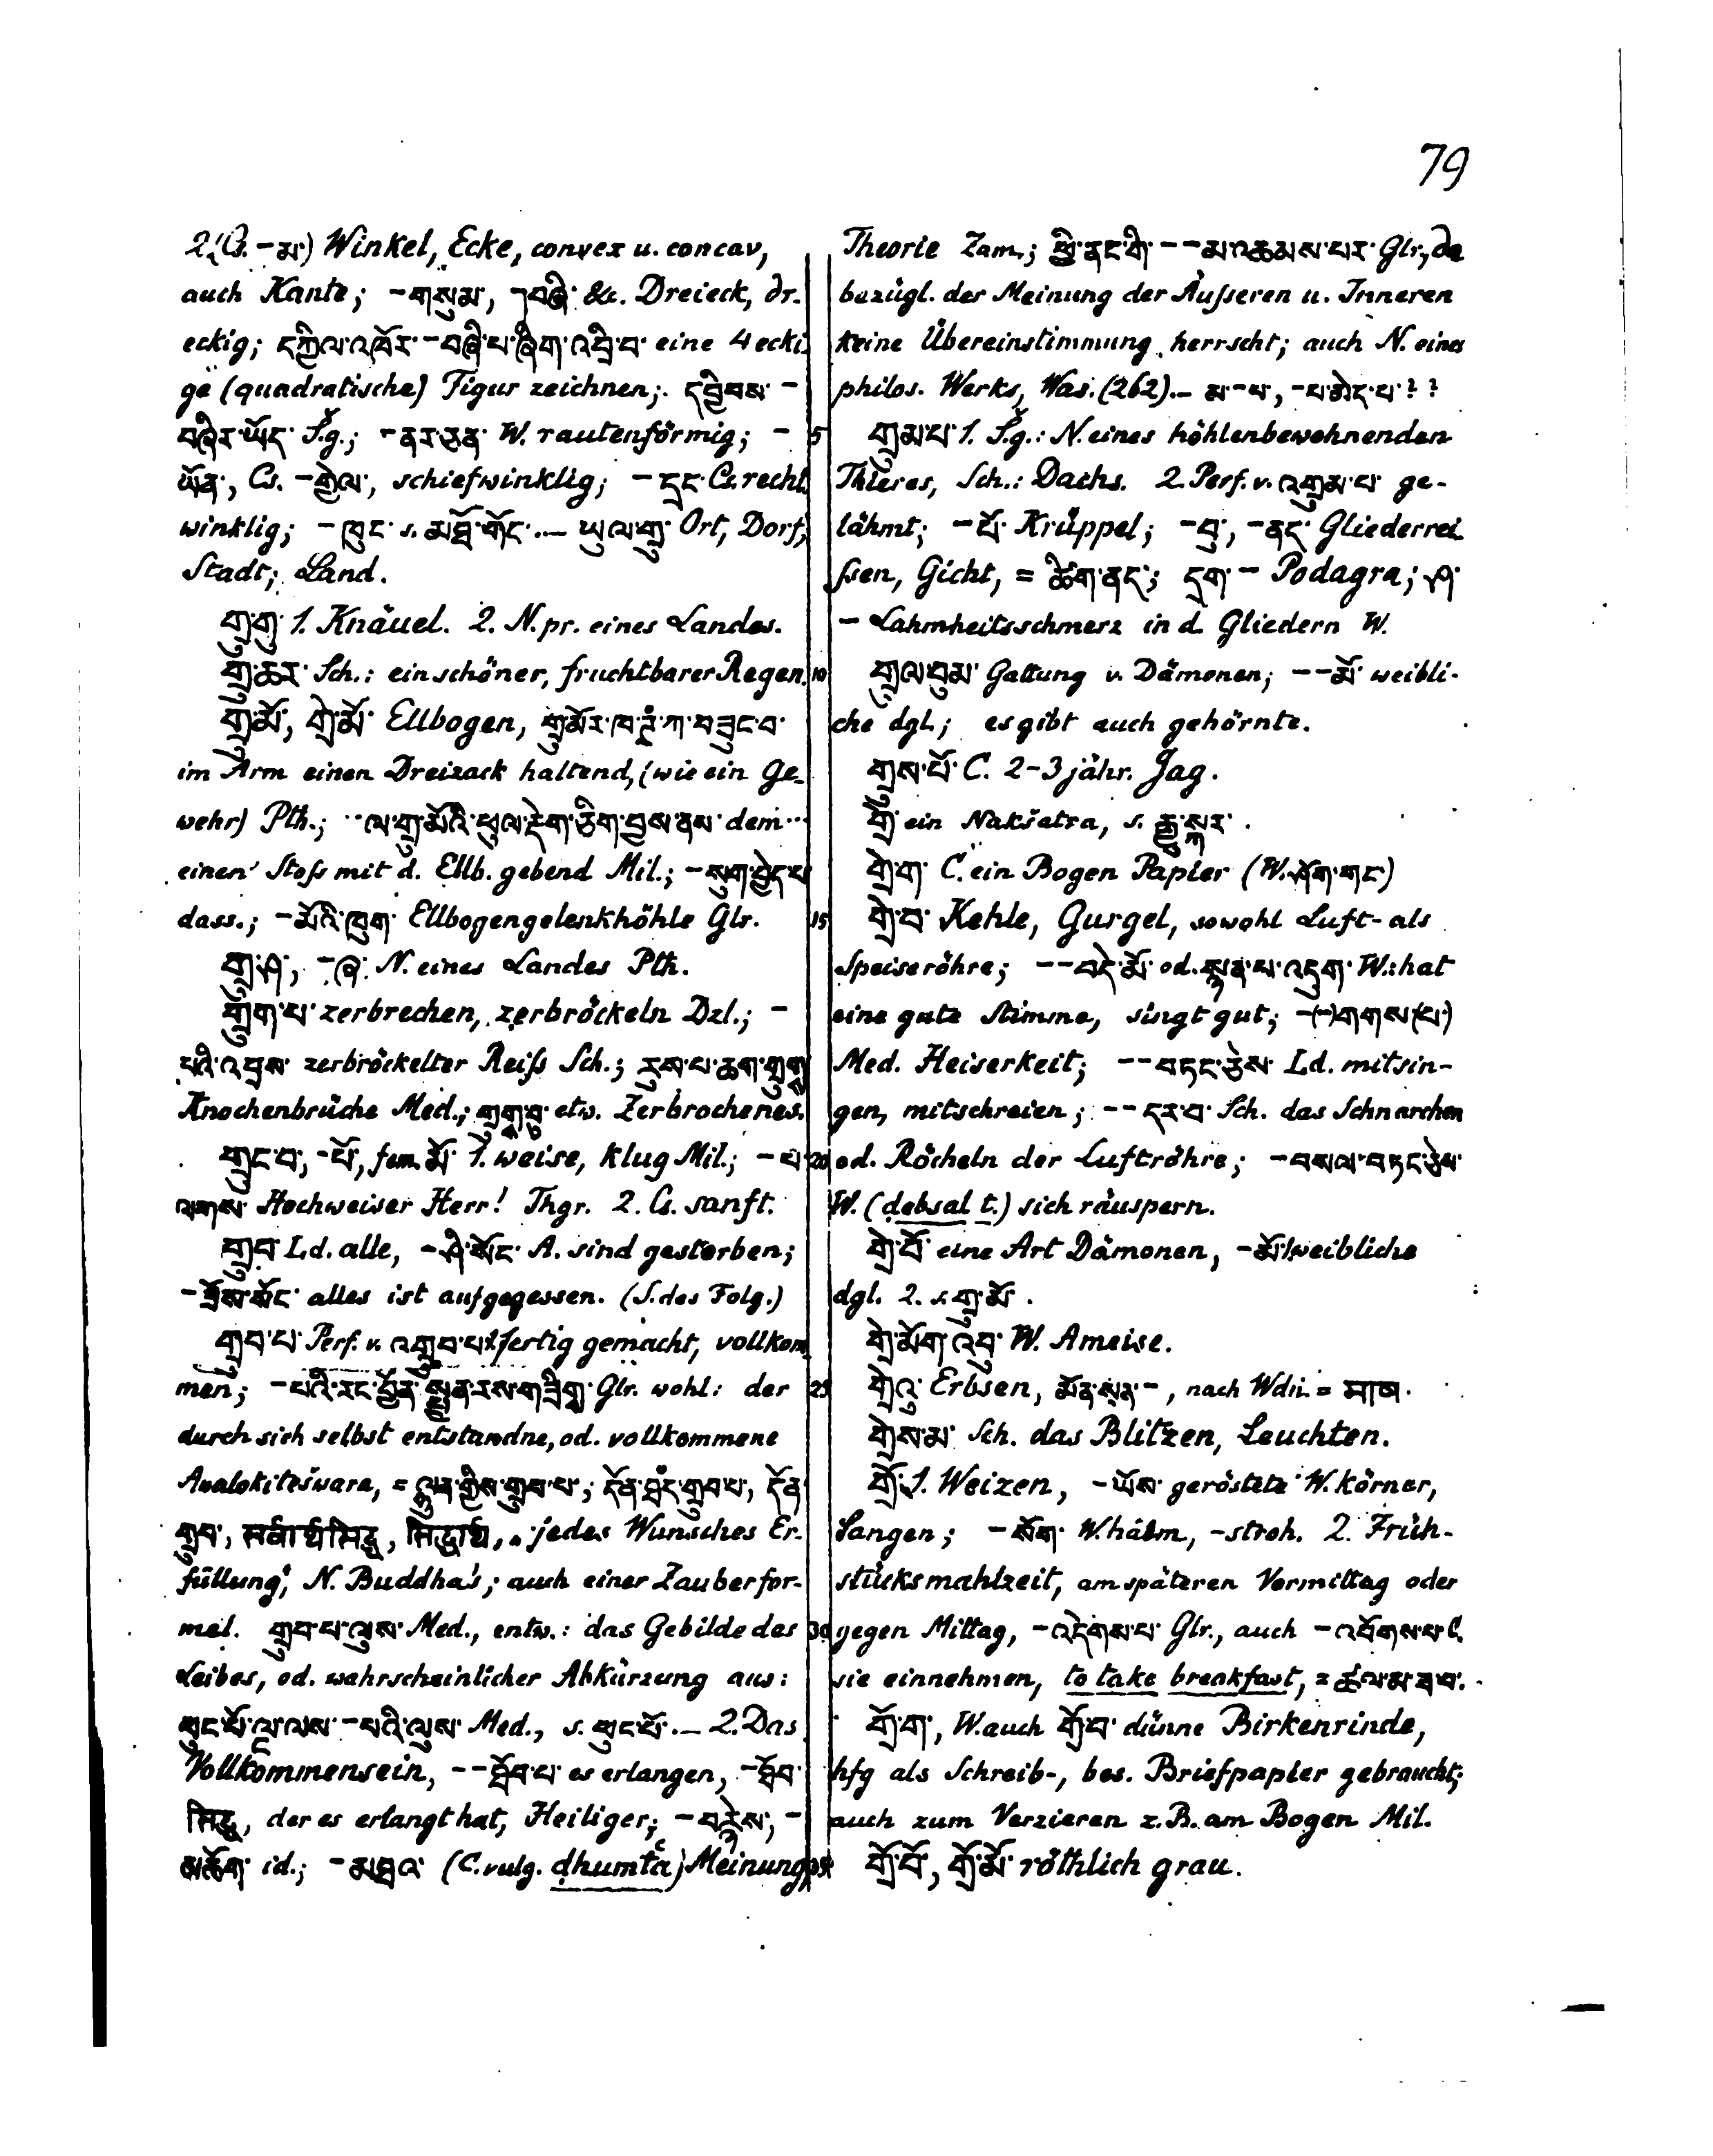 79
2. (Cs. -མ་) Winkel, Ecke, convex u. concav,
auch Kante; -གསུམ་, -བཞི་ &c. Dreieck, dr.
eckig; དཀྱིལ་འཁོར་-བཞི་པ་ཞིག་འབྲི་བ་ eine 4 ecki-
ge (quadratische) Figur zeichnen; དབྱིབས་ -
བཞིར་ཡོད་ S.g.; -ནར་ཅན་ W. rautenförmig; -
ཡོན་, Cs. -གྱེལ་, schiefwinklig; -དྲང་ Cs. recht
winklig; -ཁུང་ s. མཐོ་གོང་ .— ཡུལ་གྲུ་ Ort, Dorf,
Stadt; Land.
གྲུ་གུ་ 1. Knäuel. 2. N. pr. eines Landes.
གྲུ་ཆར་ Sch.: ein schöner, fruchtbarer Regen.
གྲུ་མོ་, གྲེ་མོ་ Ellbogen, གྲུ་མོར་ཁ་ཊྭཾ་ཀ་བཟུང་བ་
im Arm einen Dreizack haltend, (wie ein Ge-
wehr) Pth.; ··ལ་གྲུ་མོའི་ཕུལ་རྡེག་ཅིག་བྱས་ནས་ dem ···
einen Stoß mit d. Ellb. gebend Mil.; -སུག་བྱེད་པ
dass.; -མོའི་ཁུག་ Ellbogengelenkhöhle Glr.
གྲུ་ཤ་, -ཞ་ N. eines Landes Pth.
གྲུག་པ་ zerbrechen, zerbröckeln Dzl.; -
པའི་འབྲས་ zerbröckelter Reiß Sch.; རུས་པ་ཆག་གྲུགུ
Knochenbrüche Med.; གྲུགུ་བུ་ etw. Zerbrochenes.
གྲུང་བ་, -པོ་, fem. མོ་ 1. weise, klug Mil.; -པ་
ལགས་ Hochweiser Herr! Thgr. 2. Cs. sanft.
གྲུབ་ Ld. alle, -ཤི་སོང་ A. sind gestorben;
-ཟོས་སོང་ alles ist aufgegessen. (S. das Folg.)
གྲུབ་པ་ Perf. v. འགྲུབ་པ་ 1. fertig gemacht, vollkom-
men; -པའི་རང་བྱོན་སྤྱན་རས་གཟིགྲ Glr. wohl: der
durch sich selbst entstandne, od. vollkommene
Avalokitešwara, = ལྷུན་གྱིས་གྲུབ་པ་; དོན་ཐམྡ་གྲུབ་པ་, དོན་
གྲུབ་, सर्वार्थसिद्ध, सिद्धार्थ, „jedes Wunsches Er-
füllung“, N. Buddha's; auch einer Zauberfor-
mel. གྲུབ་པ་ལུས་ Med., entw.: das Gebilde des
Leibes, od. wahrscheinlicher Abkürzung aus:
ཕུང་པོ་ལྔ་ལས་-པའི་ལུས་ Med., s. ཕུང་པོ་ .— 2. Das
Vollkommensein, --ཐོབ་པ་ es erlangen, -ཐོབ་
सिद्ध, der es erlangt hat, Heiliger; -བརྙེས་, -
མཆོག་ id.; -མཐའ་ (C. vulg. ḍhumtȧ̆) Meinung,
Theorie Zam.; ཕྱི་ནང་གི་ --མ་འཆམས་པར་ Glr., da
bezügl. der Meinung der Äußeren u. Inneren
keine Übereinstimmung herrscht; auch N. eines
philos. Werks, Was. (262).- མ་-པ་, -པ་མེད་པ་ ? ?
གྲུམ་པ་ 1. S.g.: N. eines höhlenbewohnenden
Thieres, Sch.: Dachs. 2. Perf. v. འགྲུམ་པ་ ge-
lähmt; -པོ་ Krüppel; -བུ་, -ནད་ Gliederrei-
ßen, Gicht, = ཚིག་ནད་; དྲག་- Podagra; ཤ་
- Lahmheitsschmerz in d. Gliedern W.
གྲུལ་བུམ་ Gattung v. Dämonen; --མོ་ weibli-
che dgl.; es gibt auch gehörnte.
གྲུས་པོ་ C. 2-3 jähr. Jag.
གྲེ་ ein Nakšatra, s. རྒྱུ་སྐར་ .
གྲེ་ག་ C. ein Bogen Papier (W. ཤོག་གང་)
གྲེ་བ་ Kehle, Gurgel, sowohl Luft- als
Speiseröhre; --བདེ་མོ་ od. སྙན་པ་འདུག་ W.: hat
eine gute Stimme, singt gut; -(-)གགས་(པ་)
Med. Heiserkeit; --བཏང་ཅེས་ Ld. mitsin-
gen, mitschreien; --དར་བ་ Sch. das Schnarchen
od. Röcheln der Luftröhre; -བསལ་བཏང་ཅེས་
W. (ḍebsal t.) sich räuspern.
གྲེ་བོ་ eine Art Dämonen, -མོ་ 1. weibliche
dgl. 2. s. གྲུ་མོ་ .
གྲེ་མོག་འབུ་ W. Ameise.
གྲེའུ་ Erbsen, མོན་སྲན་-, nach Wdn. = माष.
གྲེས་མ་ Sch. das Blitzen, Leuchten.
གྲོ་ 1. Weizen, -ཡོས་ geröstete W. körner,
Sangen; -སོག་ W. halm, -stroh. 2. Früh-
stücksmahlzeit, am späteren Vormittag oder
gegen Mittag, -འདེགས་པ་ Glr., auch -འབོགས་པ་ C.
sie einnehmen, to take breakfast, = ཚལ་མ་ཟབ་.
གྲོ་ག་, W. auch གྲོ་བ་ dünne Birkenrinde,
hfg als Schreib-, bes. Briefpapier gebraucht;
auch zum Verzieren z. B. am Bogen Mil.
གྲོ་བོ་, གྲོ་མོ་ röthlich grau.